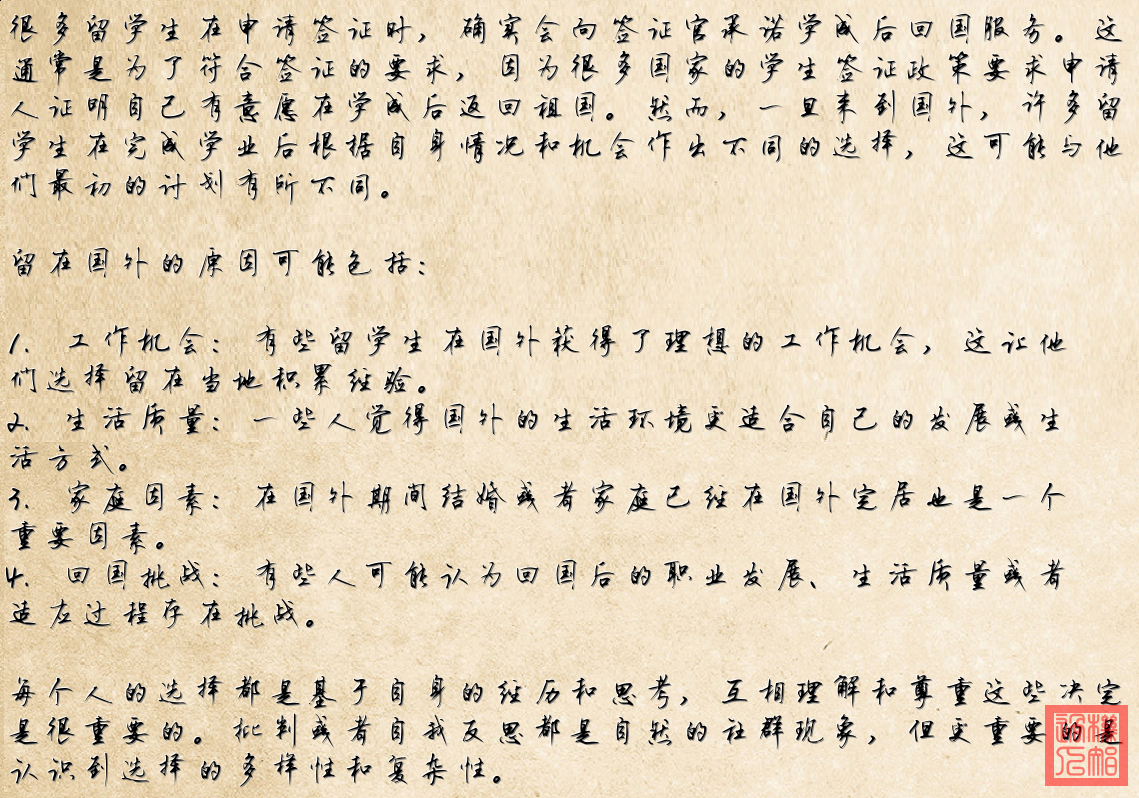 很多留学生在申请签证时，确实会向签证官承诺学成后回国服务。这
通常是为了符合签证的要求，因为很多国家的学生签证政策要求申请
人证明自己有意愿在学成后返回祖国。然而，一旦来到国外，许多留
学生在完成学业后根据自身情况和机会作出不同的选择，这可能与他
们最初的计划有所不同。
留在国外的原因可能包括：
1. 工作机会：有些留学生在国外获得了理想的工作机会，这让他
们选择留在当地积累经验。
2. 生活质量：一些人觉得国外的生活环境更适合自己的发展或生
活方式。
3. 家庭因素：在国外期间结婚或者家庭已经在国外定居也是一个
重要因素。
4. 回国挑战：有些人可能认为回国后的职业发展、生活质量或者
适应过程存在挑战。
每个人的选择都是基于自身的经历和思考，互相理解和尊重这些决定
是很重要的。批判或者自我反思都是自然的社群现象，但更重要的是
认识到选择的多样性和复杂性。